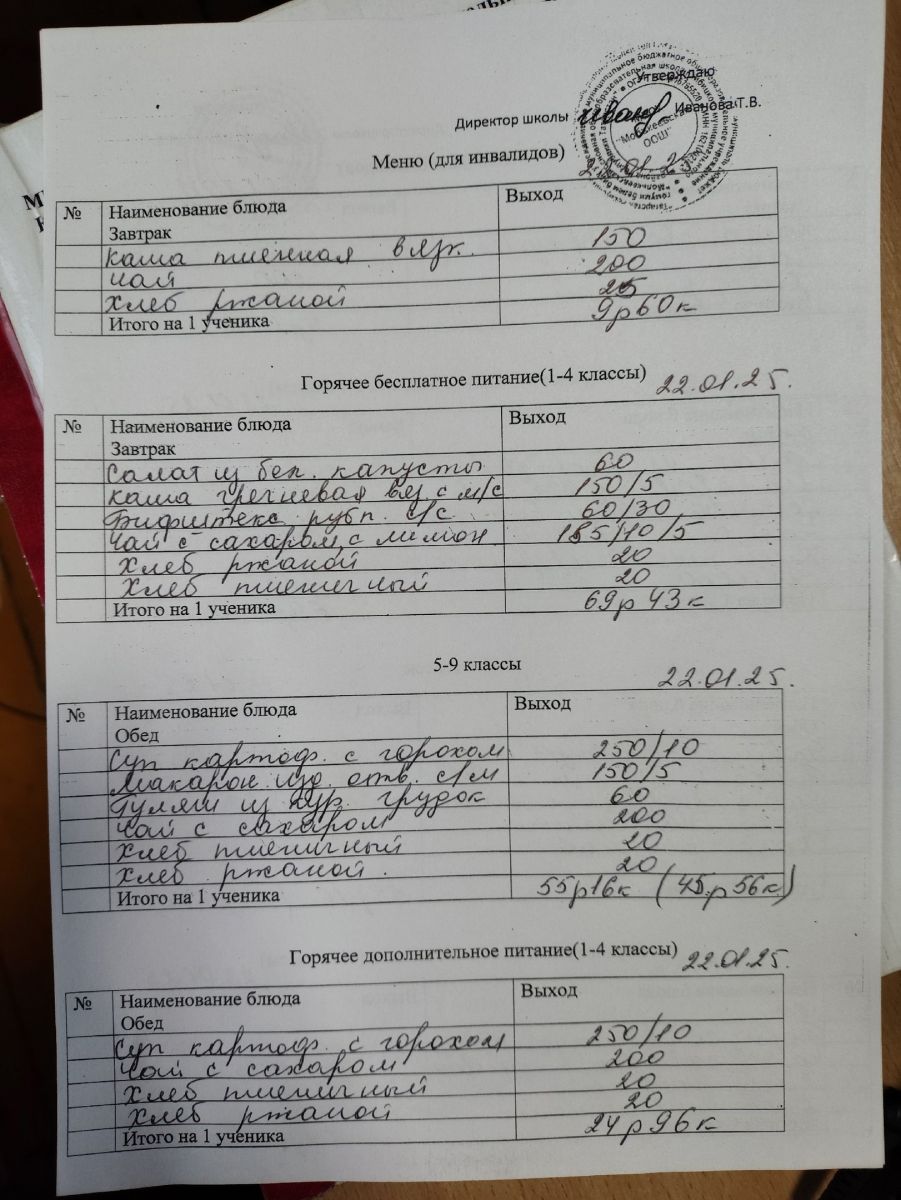 Утверждаю
Директор школы Иванова Т.В.
"Молькеевская
ООШ"
Меню (для инвалидов) 22.01.25
№ Наименование блюда Выход
Завтрак
Каша пшенная вязк. 150
Чай 200
Хлеб ржаной 25
Итого на 1 ученика 9р60к
Горячее бесплатное питание(1-4 классы) 22.01.25.
№ Наименование блюда Выход
Завтрак
Салат из бел. капусты 60
каша гречневая вяз. с м/с 150/5
Бифштекс рубл. с/с 60/30
Чай с сахаром, с лимон 185/10/5
Хлеб ржаной 20
Хлеб пшеничный 20
Итого на 1 ученика 69р 43к
5-9 классы 22.01.25.
№ Наименование блюда Выход
Обед
Суп картоф. с горохом 250/10
Макарон изд отв. с/м 150/5
Гуляш из кур. грудок 60
Чай с сахаром 200
Хлеб пшеничный 20
Хлеб ржаной. 20
Итого на 1 ученика 55р16к (45р56к)
Горячее дополнительное питание(1-4 классы) 22.01.25.
№ Наименование блюда Выход
Обед
Суп картоф. с горохом 250/10
Чай с сахаром 200
Хлеб пшеничный 20
Хлеб ржаной 20
Итого на 1 ученика 24р96к